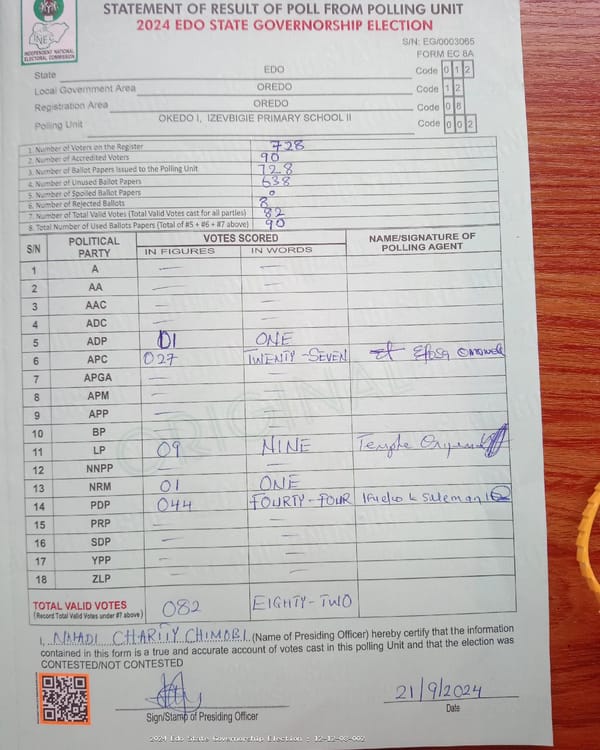 STATEMENT OF RESULT OF POLL FROM POLLING UNIT
2024 EDO STATE GOVERNORSHIP ELECTION
INEC
INDEPENDENT NATIONAL ELECTORAL COMMISSION
S/N: EG/0003065
FORM EC 8A
State EDO Code 0 1 2
Local Government Area OREDO Code 1 2
Registration Area OREDO Code 0 8
Polling Unit OKEDO I, IZEVBIGIE PRIMARY SCHOOL II Code 0 0 2
1. Number of Voters on the Register 728
2. Number of Accredited Voters 90
3. Number of Ballot Papers Issued to the Polling Unit 728
4. Number of Unused Ballot Papers 638
5. Number of Spoiled Ballot Papers 0
6. Number of Rejected Ballots 8
7. Number of Total Valid Votes (Total Valid Votes cast for all parties) 82
8. Total Number of Used Ballots Papers (Total of #5 + #6 + #7 above) 90
S/N POLITICAL PARTY VOTES SCORED NAME/SIGNATURE OF POLLING AGENT
IN FIGURES IN WORDS
1 A — —
2 AA — —
3 AAC — —
4 ADC — —
5 ADP 01 ONE
6 APC 027 TWENTY-SEVEN Efosa
7 APGA — —
8 APM — —
9 APP — —
10 BP — —
11 LP 09 NINE Temple
12 NNPP — —
13 NRM 01 ONE
14 PDP 044 FOURTY-FOUR
15 PRP — —
16 SDP — —
17 YPP — —
18 ZLP — —
ORIGINAL
TOTAL VALID VOTES 082 EIGHTY-TWO
(Record Total Valid Votes under #7 above)
I, NNADI CHARITY CHIMOBI (Name of Presiding Officer) hereby certify that the information
contained in this form is a true and accurate account of votes cast in this polling Unit and that the election was
CONTESTED/NOT CONTESTED
21/9/2024
Sign/Stamp of Presiding Officer Date
2024 Edo State Governorship Election : 12-12-08-002